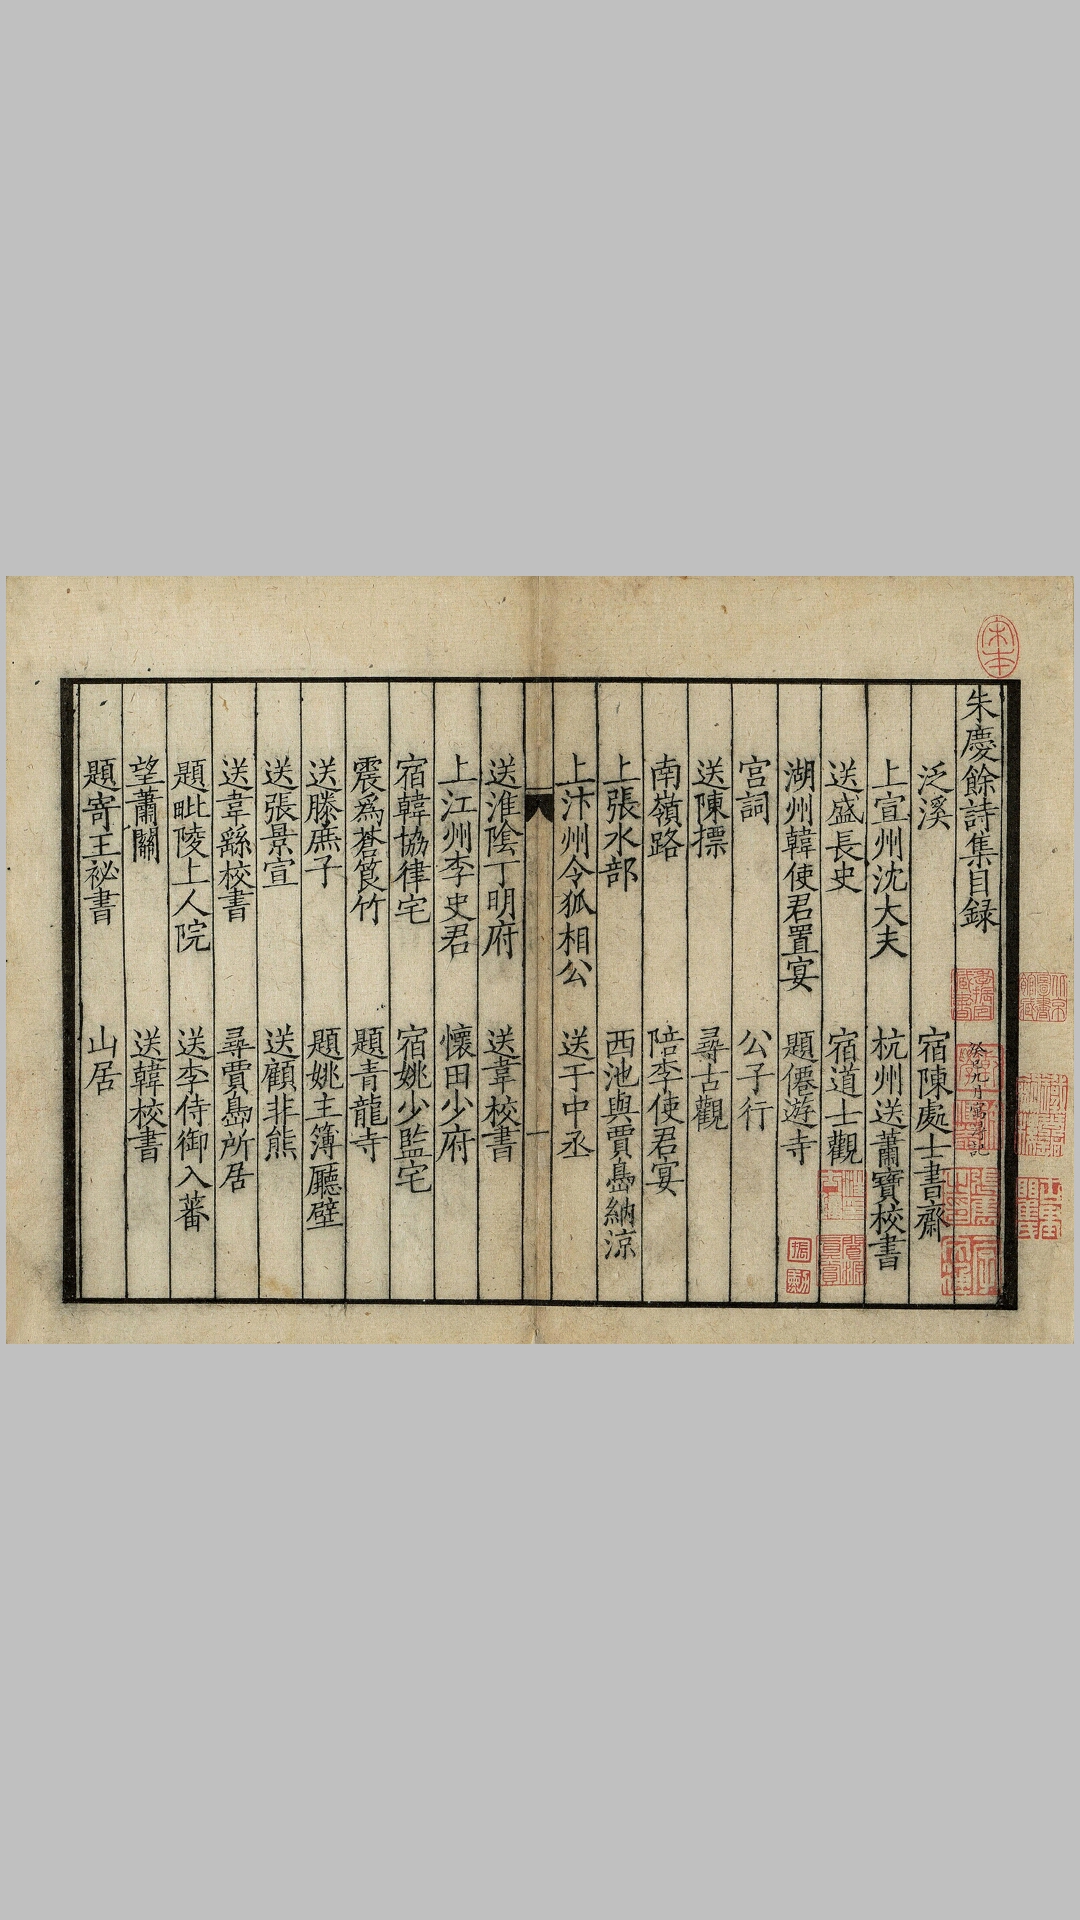 宋本
朱慶餘詩集目録
泛溪 宿陳處士書齋
上宣州沈大夫 杭州送蕭寶校書
送盛長史 宿道士觀
湖州韓使君置宴 題僊遊寺
宫詞 公子行
送陳摽 尋古觀
南嶺路 陪李使君宴
上張水部 西池與賈島納涼
上汴州令狐相公 送于中丞
一
送淮陰丁明府 送韋校書
上江州李史君 懷田少府
宿韓協律宅 宿姚少監宅
震爲蒼筤竹 題青龍寺
送滕庶子 題姚主簿廳壁
送張景宣 送顧非熊
送韋繇校書 尋賈島所居
題毗陵上人院 送李侍御入蕃
望蕭關 送韓校書
題寄王祕書 山居